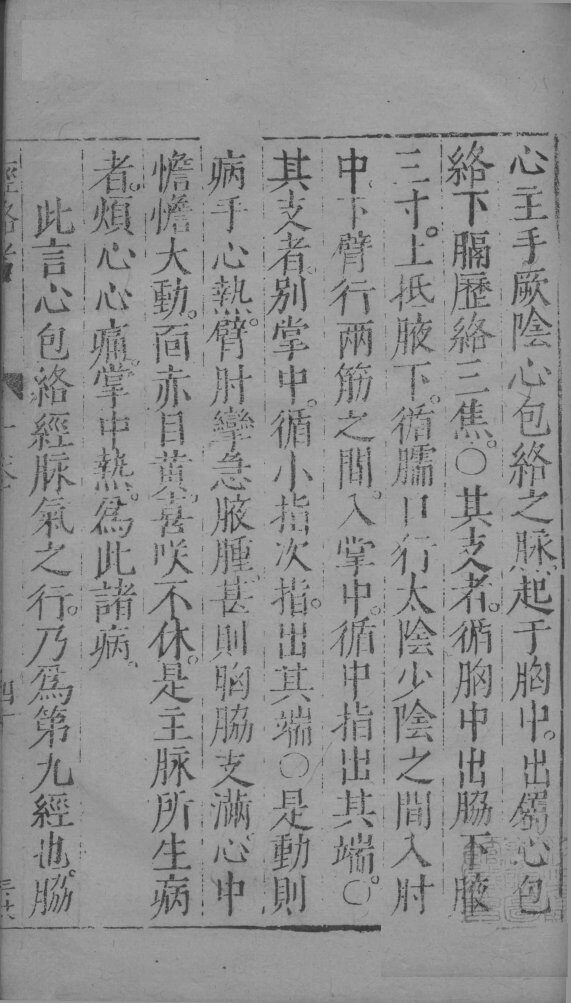 心主手厥陰心包絡之脉起于胸中。出屬心包
絡下膈歷絡三焦。〇其支者。循胸中出脇下腋
三寸。上抵腋下。循臑内行太陰少陰之間入肘
中。下臂行兩筋之間。入掌中。循中指出其端。〇
其支者。别掌中。循小指次指。出其端〇是動則
病手心熱。臂肘攣急腋腫。甚則胸脇支滿。心中
憺憺大動。面赤目黄。喜咲不休。是主脉所生病
者。煩心心痛。掌中熱。爲此諸病。
此言心包絡經脉氣之行。乃爲第九經也。脇
經絡